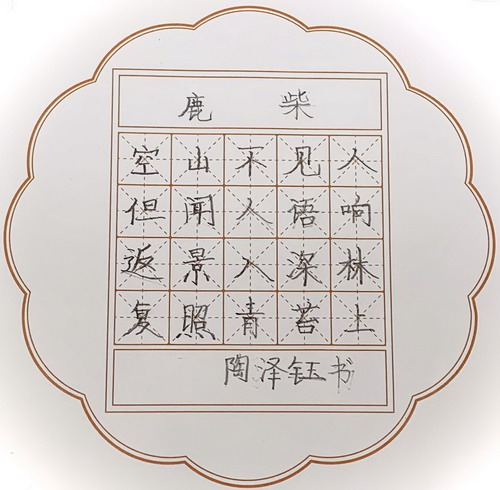 鹿柴
空山不见人
但闻人语响
返景入深林
复照青苔上
陶泽钰书